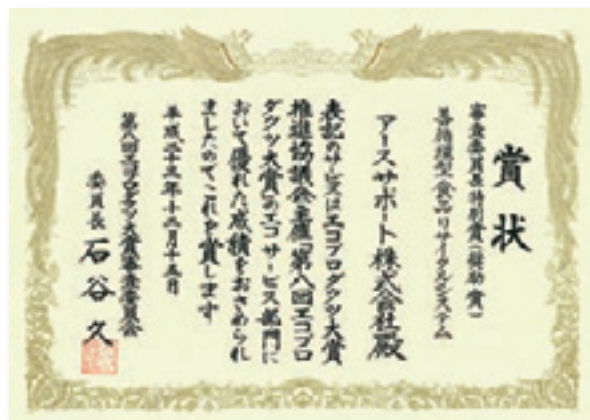 賞状
審査委員長特別賞(奨励賞)
善循環型食品リサイクルシステム
アースサポート株式会社殿
表記のサービスはエコプロダクツ大賞
推進協議会主催「第八回エコプロ
ダクツ大賞」のエコサービス部門に
おいて優れた成績をおさめられ
ましたのでこれを賞します
平成二十三年十二月十五日
第八回エコプロダクツ大賞審査委員会
委員長 石谷久